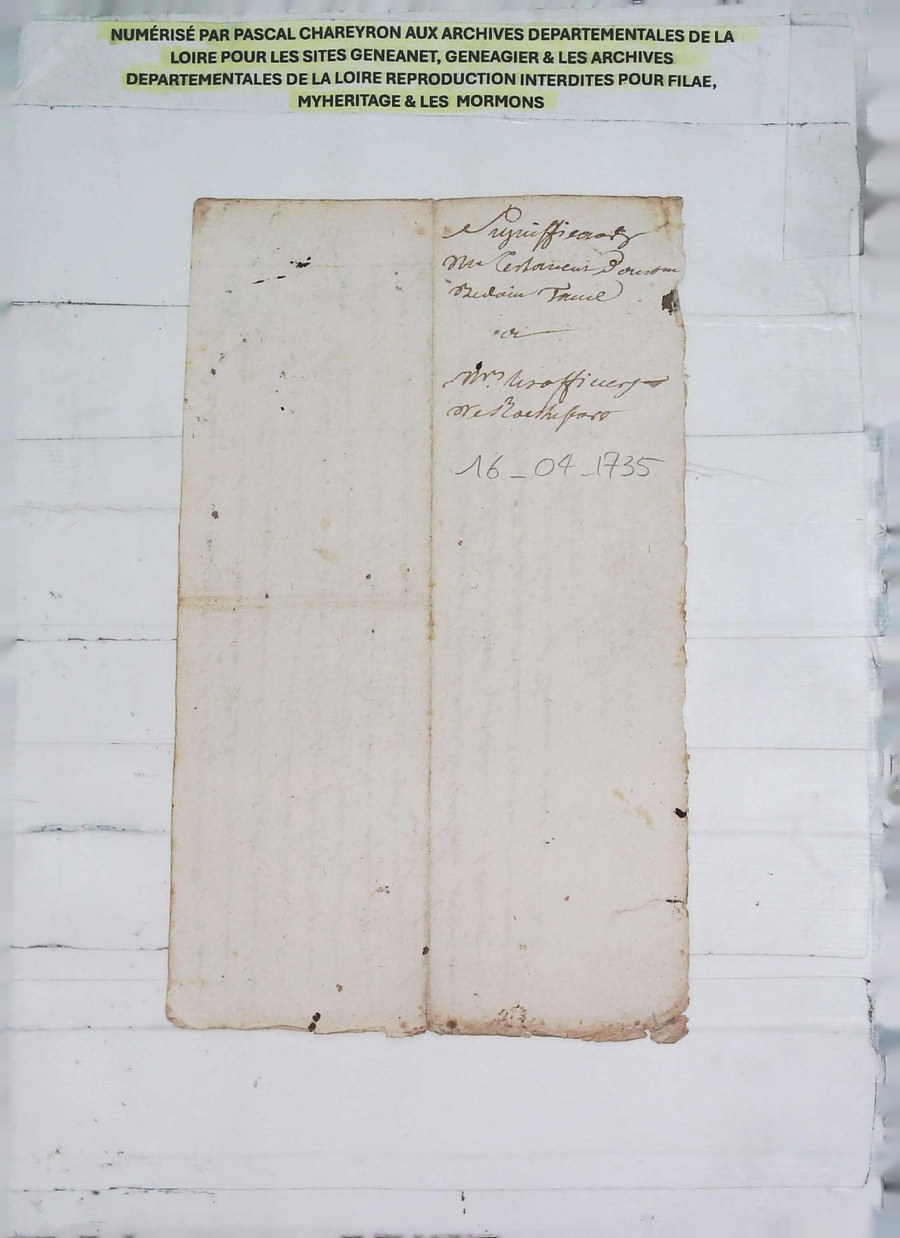 NUMÉRISÉ PAR PASCAL CHAREYRON AUX ARCHIVES DEPARTEMENTALES DE LA
LOIRE POUR LES SITES GENEANET, GENEAGIER & LES ARCHIVES
DEPARTEMENTALES DE LA LOIRE REPRODUCTION INTERDITES POUR FILAE,
MYHERITAGE & LES MORMONS
Signifficaõn
Du Testament
a
Mrs les officiers
De Rochefort
16_04_1735